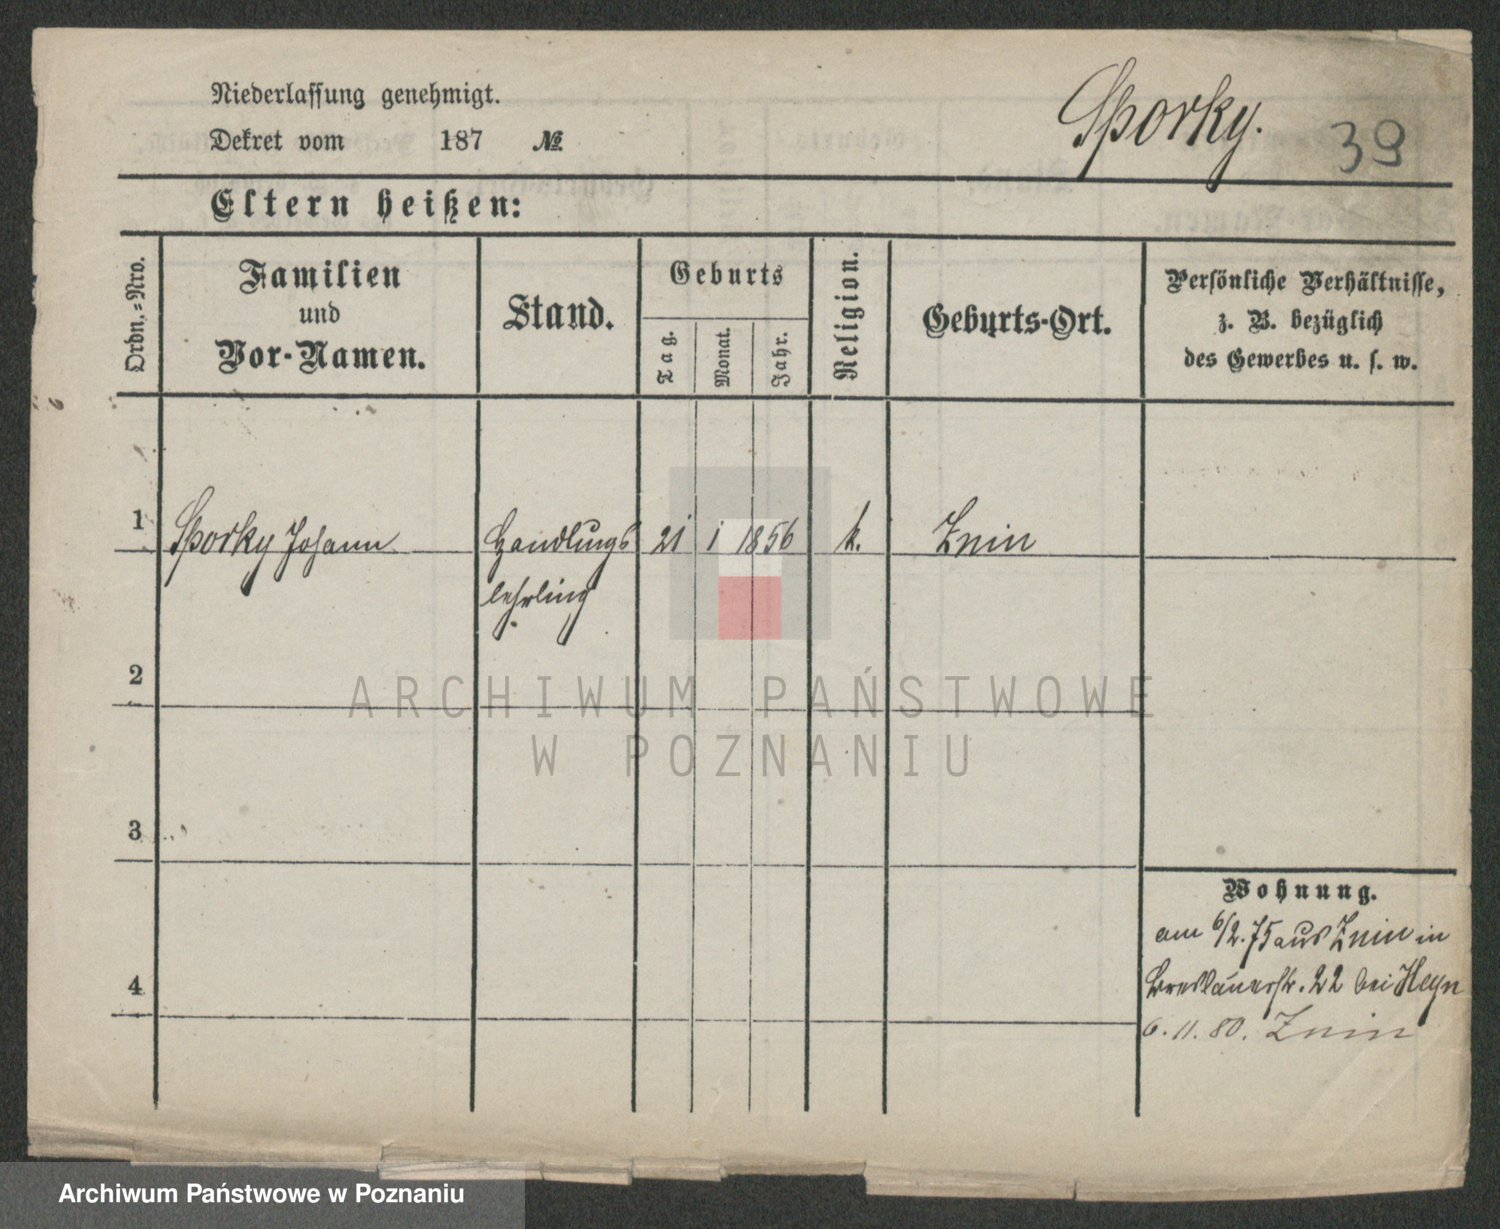 Niederlassung genehmigt.
Dekret vom 187 №
Sporky.
39
Eltern heißen:
Ordn.-Nro.
Familien
und
Vor-Namen.
Stand.
Geburts
Tag.
Monat.
Jahr.
Religion.
Geburts-Ort.
Persönliche Verhältnisse,
z. B. bezüglich
des Gewerbes u. s. w.
1
Sporky Johann
Handlungs
lehrling
21 1 1856
k.
Znin
2
3
4
Wohnung.
am 6/2. 75 aus Znin in
Breslauerstr. 22 bei Heyn
6. 11. 80. Znin
ARCHIWUM PAŃSTWOWE
W POZNANIU
Archiwum Państwowe w Poznaniu